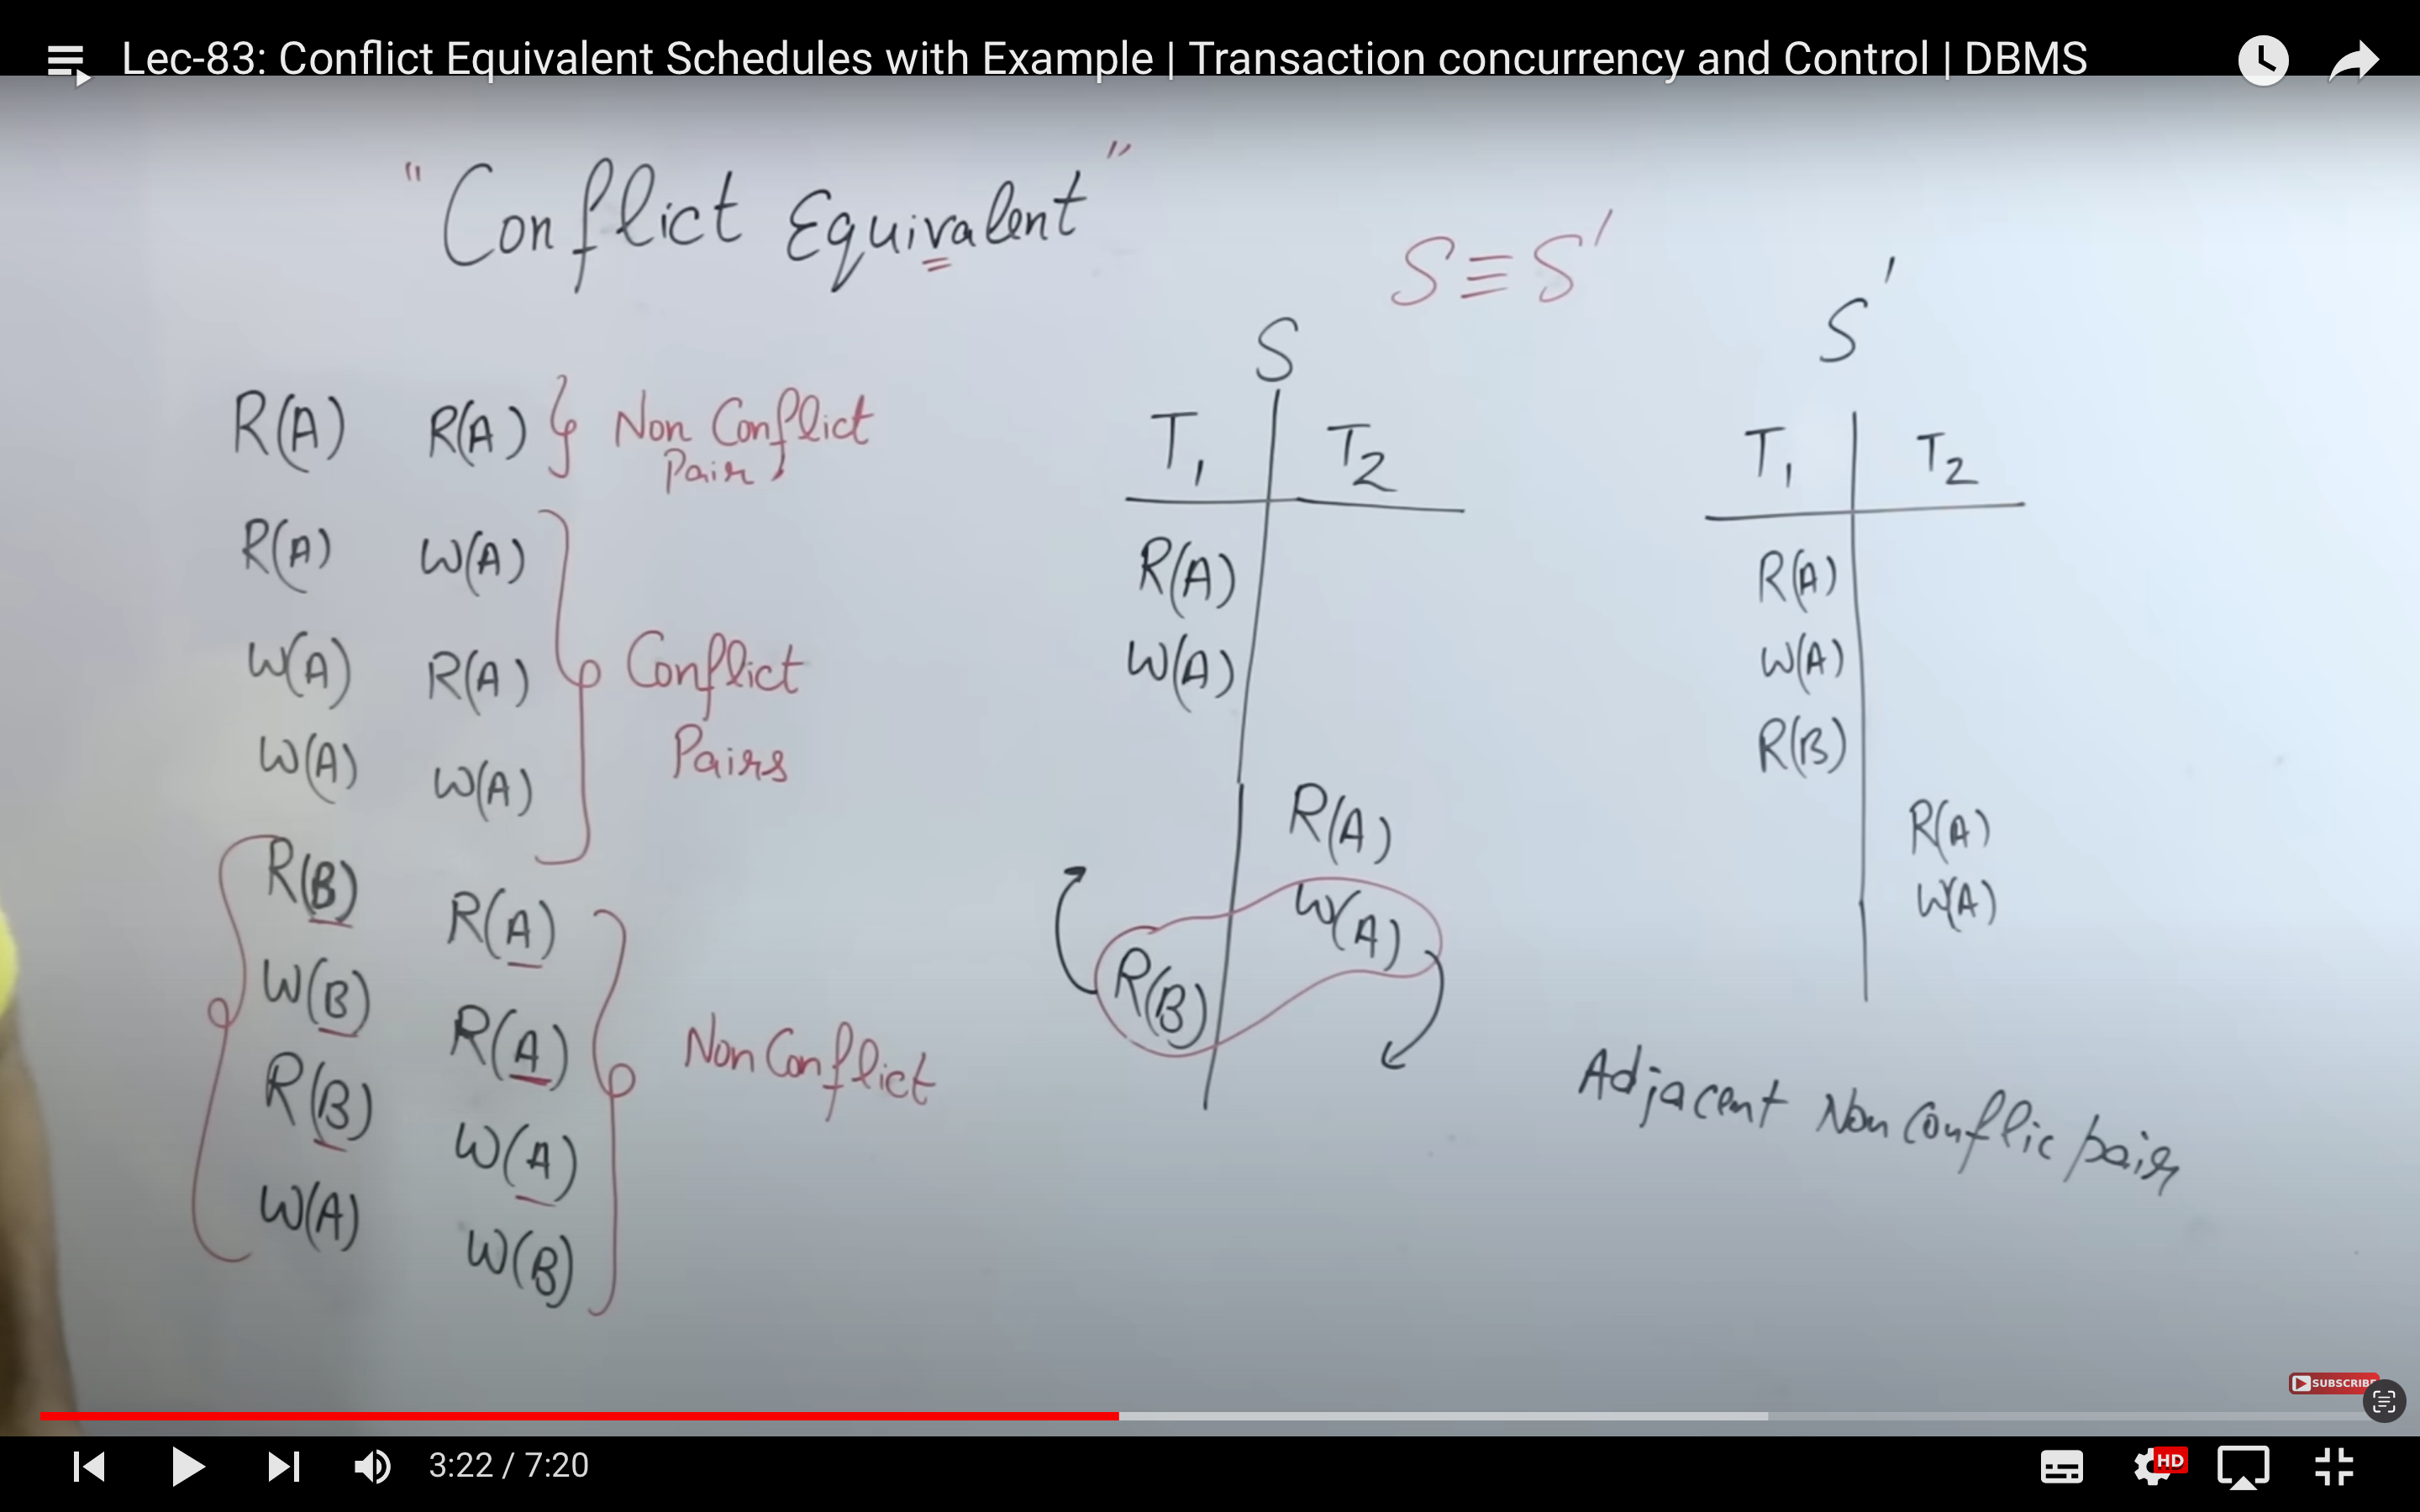 Lec-83: Conflict Equivalent Schedules with Example | Transaction concurrency and Control | DBMS
"Conflict Equivalent"
S ≡ S'
S
S'
R(A) R(A) } Non Conflict
Pair
R(A) W(A)
W(A) R(A)
Conflict
Pairs
W(A) W(A)
R(B) R(A)
W(B) R(A)
Non Conflict
R(B) W(A)
W(A) W(B)
T1 T2
R(A)
W(A)
R(A)
W(A)
R(B)
T1 T2
R(A)
W(A)
R(B)
R(A)
W(A)
Adjacent Non Conflic pair
SUBSCRIBE
3:22 / 7:20
HD